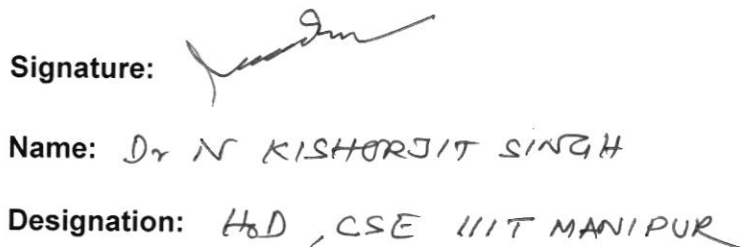 Signature:
Name: Dr N KISHORJIT SINGH
Designation: HoD, CSE IIIT MANIPUR